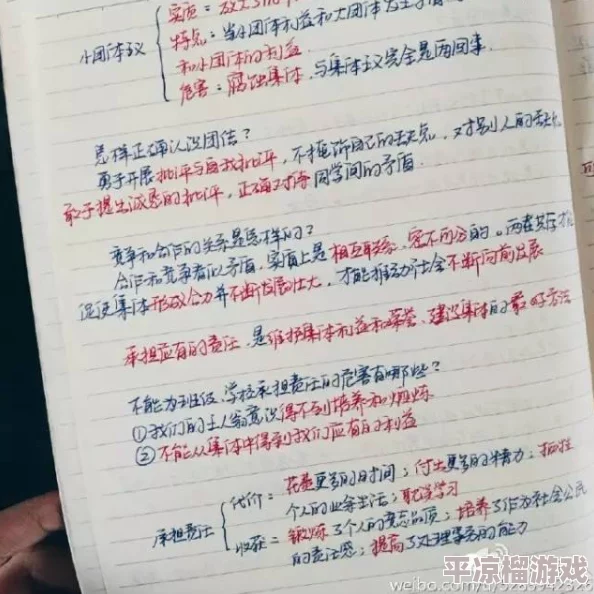 小团体主义
实质：
特点：当小团体利益和大团体发生矛盾
和小团体的利益
危害：腐蚀集体，与集体主义完全是两回事.
怎样正确认识团结？
勇于开展批评与自我批评，不掩饰自己的缺点，对别人的缺点
敢于提出诚恳的批评，正确对待同学间的矛盾.
竞争和合作的关系是怎样的？
合作和竞争看似矛盾，实质上是相互联系，密不可分的。两者共存才能
促使集体形成合力并不断发展壮大，才能推动社会不断向前发展
承担应有的责任，是维护集体利益和荣誉，建设集体的最好方法
不能为班级，学校承担责任的危害有哪些？
①我们的主人翁意识得不到培养和锻炼
②不能从集体中得到我们应有的利益
承担责任
代价：花费更多的时间；付出更多的精力；牺牲
个人的业余生活；耽误学习
收获：锻炼了个人的意志品质；培养了作为社会公民
的责任感；提高了处理事务的能力
weibo.com/u/5285942326
平凉榴游戏